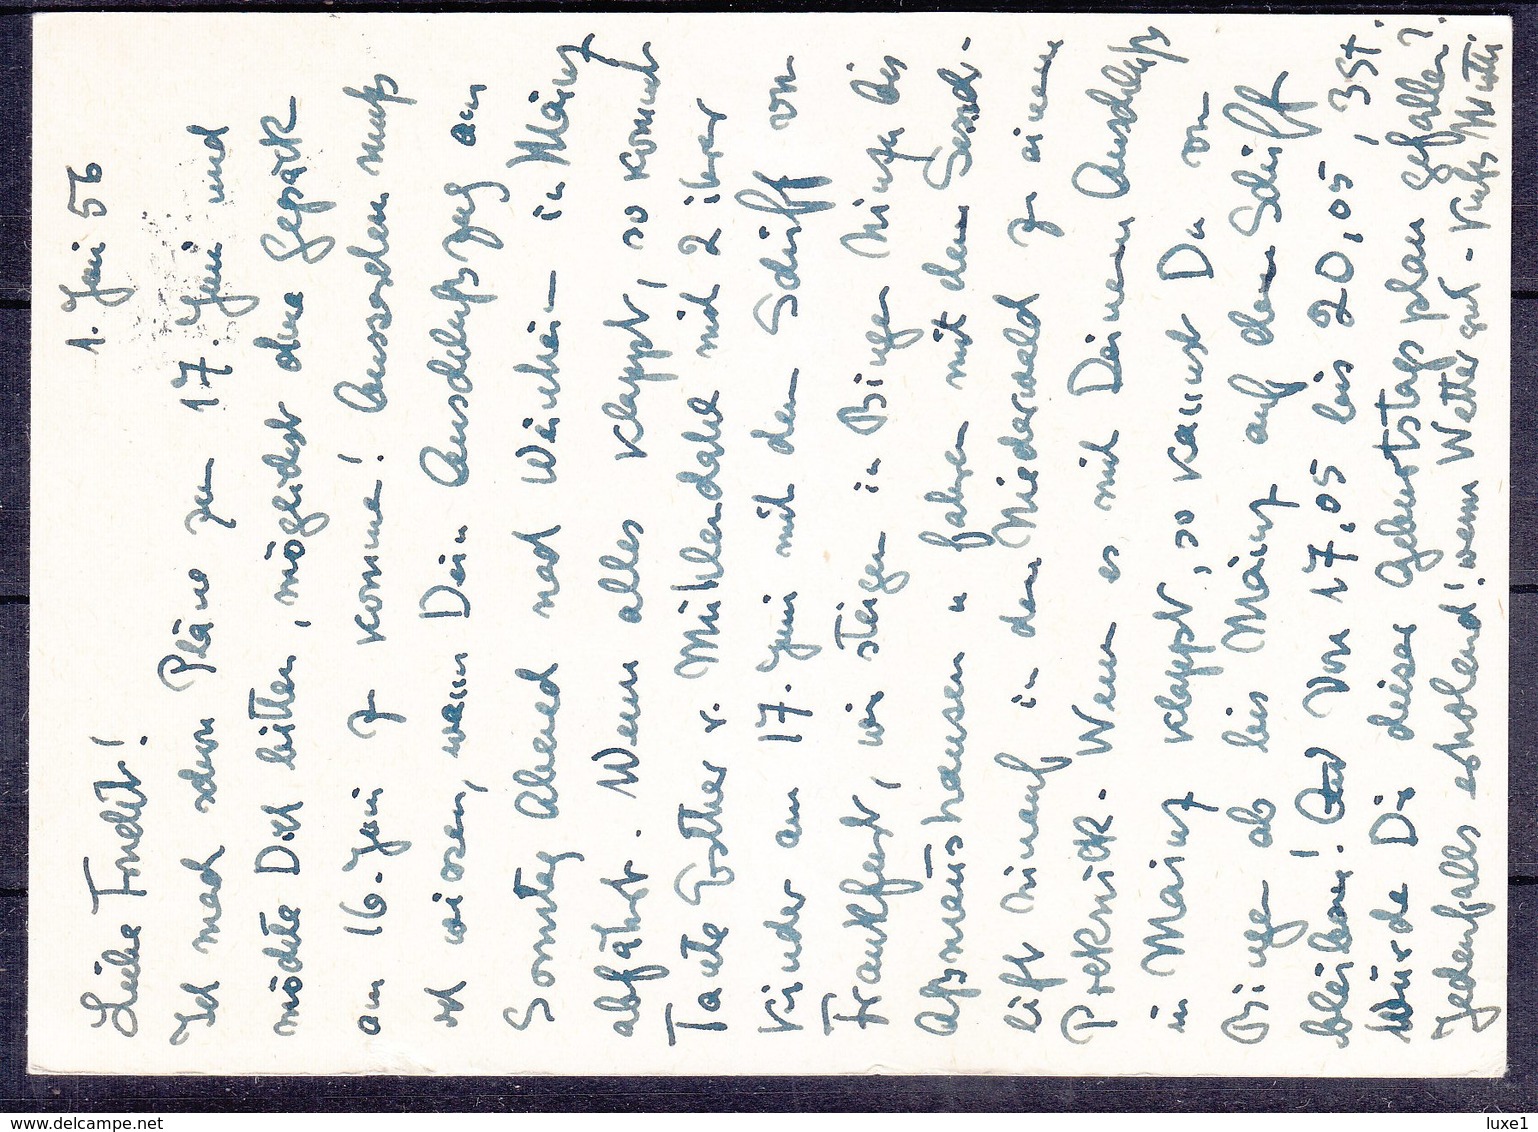 1. Juni 56
Liebe Frudit!
Ich mach schon Pläne zum 17. Juni und
möchte Dich bitten, möglichst ohne Gepäck
am 16. Juni zu kommen! Ausserdem muß
ich wissen, wann Dein Anschlußzug am
Sonntag Abend nach Weinheim in Mainz
abfährt. Wenn alles klappt, so kommt
Tante Esther v. Mühlendahl mit 2 ihrer
Kinder am 17. Juni mit dem Schiff von
Frankfurt, wir steigen in Bingen hinzu bis
Aßmannshausen u fahren mit dem Sessel-
lift hinauf in den Niederwald zu einem
Picknick. Wenn es mit Deinem Anschluß
in Mainz klappt, so kannst Du von
Bingen ab bis Mainz auf dem Schiff
bleiben! Von 17,05 bis 20,05, 3 St.
Würde Dir dieser Geburtstagsplan gefallen?
Jedenfalls erholend, wenn Wetter gut - Kuß, Mutti
www.delcampe.net
luxe1